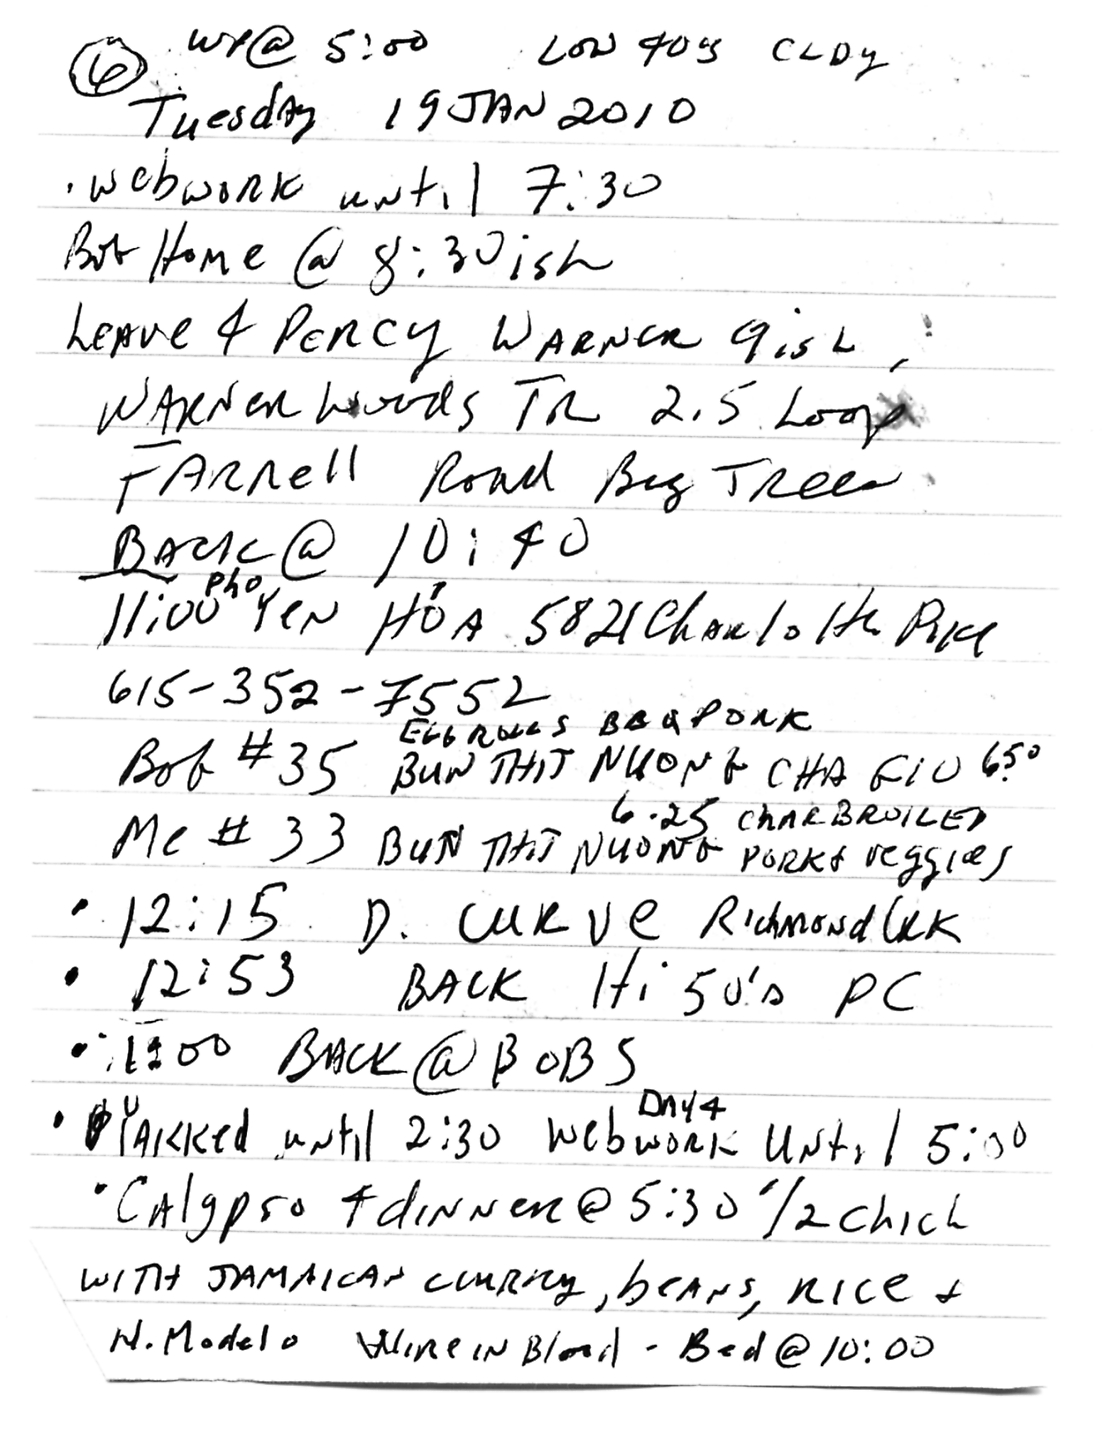 6 up@ 5:00 Low 40s CLDy
Tuesday 19 JAN 2010
· Webwork until 7:30
Bob Home @ 8:30ish
Leave 4 Percy Warner 9ish,
Warner Woods TR 2.5 Loop
Farrell Road Big Trees
Back @ 10:40
Pho
11:00 Yen Hoa 5821 Charlotte Pike
615-352-7552
EGG ROLLS BBQ PORK
Bob #35 BUN THIT NUONG CHA GIO 6.50
6.25 CHARBROILED
Me # 33 BUN THIT NUONG PORK & veggies
· 12:15 D. CURVE Richmond Crk
· 12:53 BACK Hi 50's PC
· 00 BACK @ BOBS
DAY 4
· Yakked until 2:30 Webwork Until 5:00
· Calypso 4 dinner @ 5:30 1/2 Chick
WITH JAMAICAN CURRY, beans, RICE &
N. Modelo Wire in Blood - Bed @ 10:00